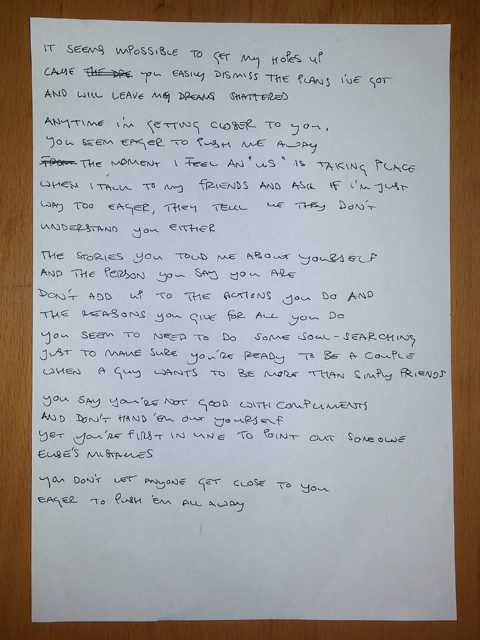 IT SEEMS IMPOSSIBLE TO GET MY HOPES UP
CAUSE you EASILY DISMISS THE PLANS I'VE GOT
AND WILL LEAVE MY DREAMS SHATTERED
ANYTIME I'M GETTING CLOSER TO YOU,
YOU SEEM EAGER TO PUSH ME AWAY
THE MOMENT I FEEL AN "US" IS TAKING PLACE
WHEN I TALK TO MY FRIENDS AND ASK IF I'M JUST
WAY TOO EAGER, THEY TELL ME THEY DON'T
UNDERSTAND you EITHER
THE STORIES you TOLD ME ABOUT yOURSELF
AND THE PERSON you SAY you ARE
DON'T ADD UP TO THE ACTIONS you DO AND
THE REASONS you GIVE FOR ALL you DO
you SEEM TO NEED TO DO SOME SOUL-SEARCHING
JUST TO MAKE SURE you'RE READY TO BE A COUPLE
WHEN A GUY WANTS TO BE MORE THAN SIMPLY FRIENDS
you SAY you'RE NOT GOOD WITH COMPLIMENTS
AND DON'T HAND 'EM OUT yOURSELF
YET you'RE FIRST IN LINE TO POINT OUT SOMEONE
ELSE'S MISTAKES
you DON'T LET ANYONE GET CLOSE TO you
EAGER TO PUSH 'EM ALL AWAY